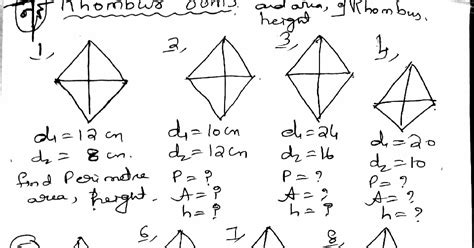 Rhombus Sums. and area, of Rhombus.
height
1, 2, 3, 4,
d1 = 12 cm
d2 = 8 cm.
find Perimetre
area, height.
d1 = 10 cm
d2 = 12 cm
P = ?
A = ?
h = ?
d1 = 24
d2 = 16
P = ?
A = ?
h = ?
d1 = 20
d2 = 10
P = ?
A = ?
h = ?
6, 7, 8,